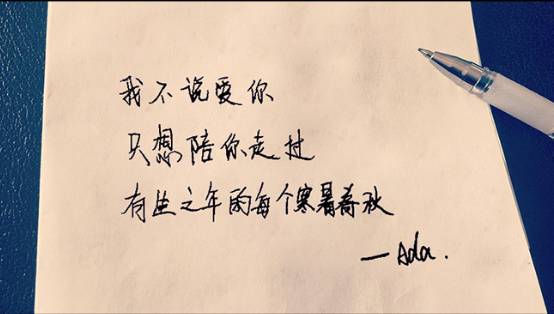 我不说爱你
只想陪你走过
有生之年的每个寒暑春秋
—Ada.